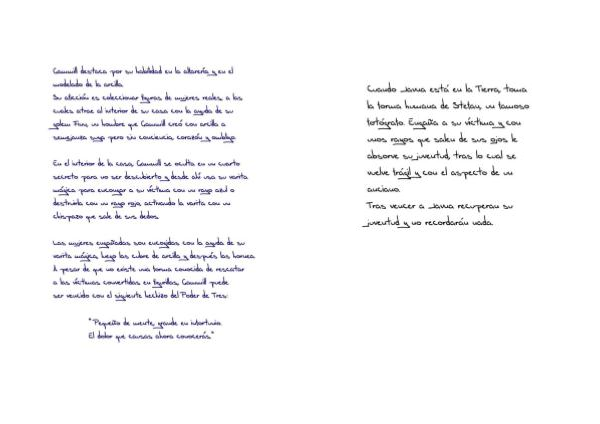 Gammill destaca por su habilidad en la alfarería y en el
modelado de la arcilla.
Su afición es coleccionar figuras de mujeres reales, a las
cuales atrae al interior de su casa con la ayuda de su
golem Finn, un hombre que Gammill creó con arcilla a
semejanza suya pero sin conciencia, corazón y ombligo.
En el interior de la casa, Gammill se oculta en un cuarto
secreto para no ser descubierto y desde ahí usa su varita
mágica para encoger a su víctima con un rayo azul o
destruirla con un rayo rojo, activando la varita con un
chispazo que sale de sus dedos.
Las mujeres engañadas son encogidas con la ayuda de su
varita mágica, luego las cubre de arcilla y después las hornea.
A pesar de que no existe una forma conocida de rescatar
a las víctimas convertidas en figurillas, Gammill puede
ser vencido con el siguiente hechizo del Poder de Tres:
"Pequeño de mente, grande en infortunio.
El dolor que causas ahora conocerás."
Cuando Javna está en la Tierra, toma
la forma humana de Stefan, un famoso
fotógrafo. Engaña a su víctima y con
unos rayos que salen de sus ojos le
absorve su juventud, tras lo cual se
vuelve frágil y con el aspecto de un
anciano.
Tras vencer a Javna recuperan su
juventud y no recordarán nada.